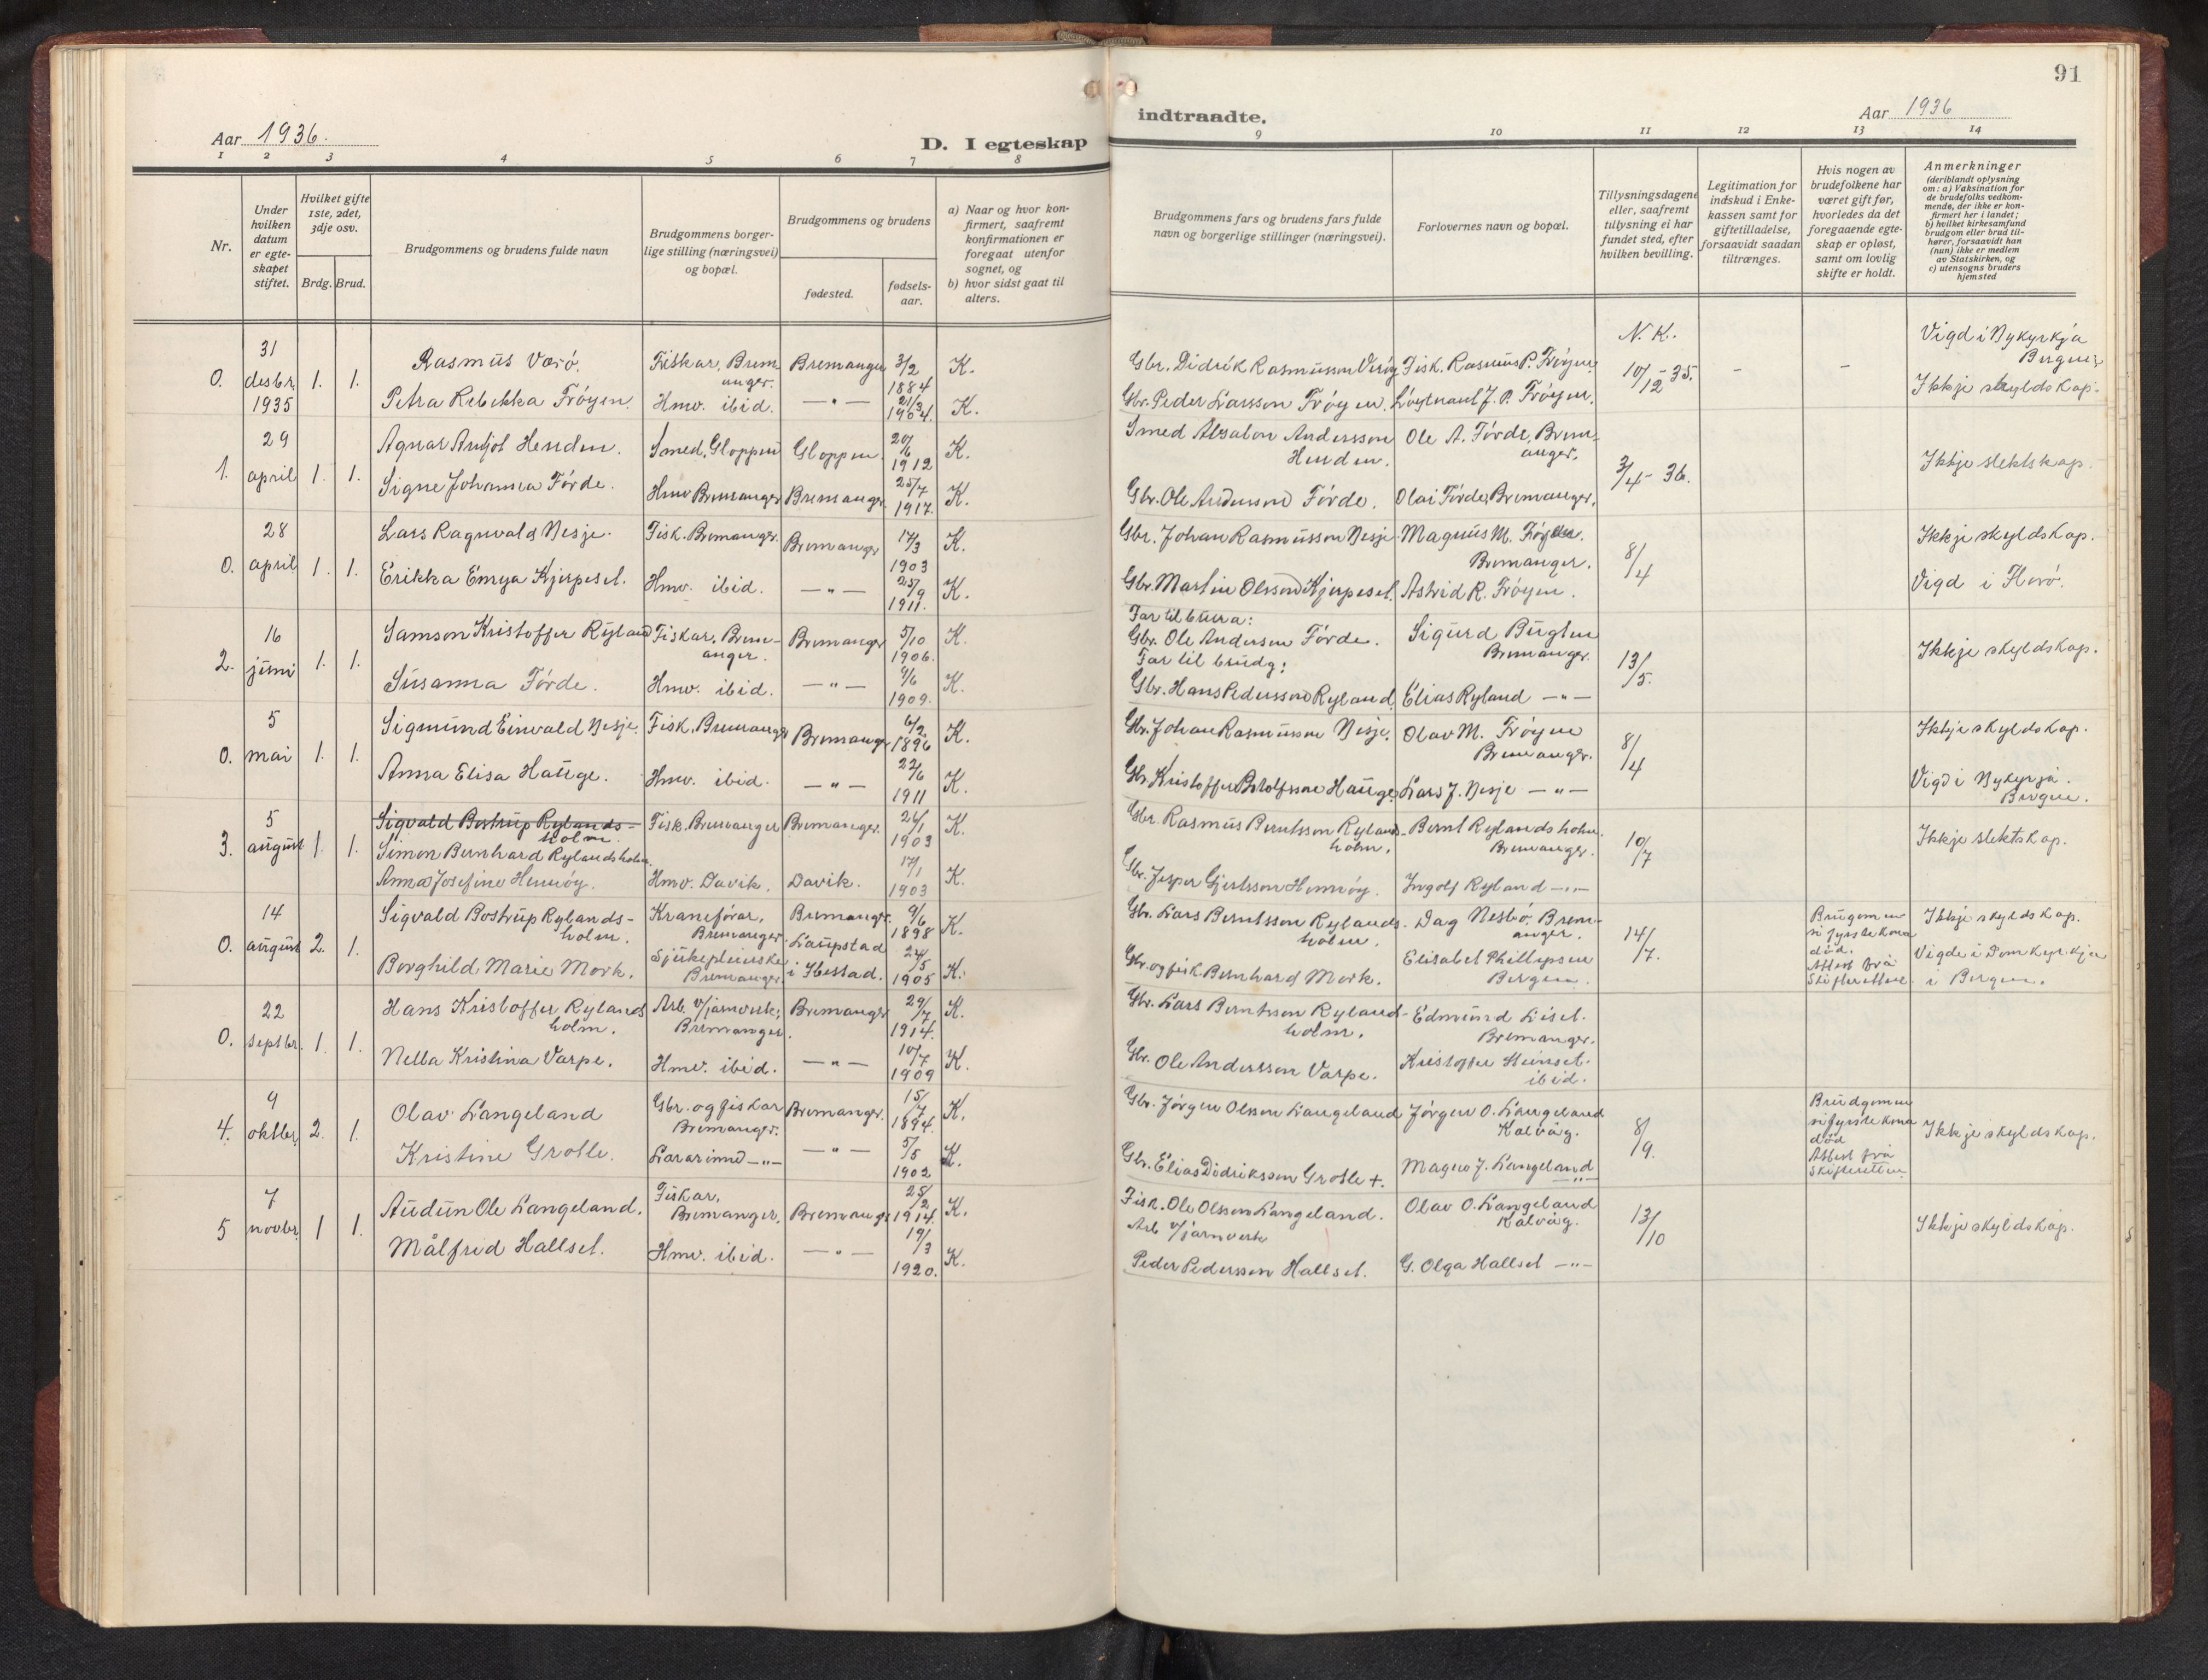 91
Aar 1936.
D. I egteskap
indtraadte.
Aar 1936
1 2 3 4 5 6 7 8
9 10 11 12 13 14
Nr.
Under hvilken datum er egteskapet stiftet.
Hvilket gifte 1ste, 2det, 3dje osv.
Brdg. Brud.
Brudgommens og brudens fulde navn
Brudgommens borgerlige stilling (næringsvei) og bopæl.
Brudgommens og brudens
fødested.
fødselsaar.
a) Naar og hvor konfirmert, saafremt konfirmationen er foregaat utenfor sognet, og
b) hvor sidst gaat til alters.
Brudgommens fars og brudens fars fulde navn og borgerlige stillinger (næringsvei).
Forlovernes navn og bopæl.
Tillysningsdagene eller, saafremt tillysning ei har fundet sted, efter hvilken bevilling.
Legitimation for indskud i Enkekassen samt for giftetilladelse, forsaavidt saadan tiltrænges.
Hvis nogen av brudefolkene har været gift før, hvorledes da det foregaaende egteskap er opløst, samt om lovlig skifte er holdt.
Anmerkninger (deriblandt oplysning om: a) Vaksination for de brudefolks vedkommende, der ikke er konfirmert her i landet; b) hvilket kirkesamfund brudgom eller brud tilhører, forsaavidt han (hun) ikke er medlem av Statskirken, og c) utensogns bruders hjemsted
0. 31 desbr. 1935 1. 1. Rasmus Varö. Fiskar, Bremanger. Bremanger 3/2 1884 K.
Petra Rebekka Fröyen. Hmv. ibid. —"— 21/3 1904. K.
Gbr. Didrik Rasmusson Fisk. Rasmus P. Fröyen. N. K. 10/12-35. - - Vigd i Nykyrkja Bergen.
Gbr. Peder Larsson Fröyen. Löytnant J. P. Fröyen. Ikkje skyldskap.
1. 29 april 1. 1. Agnar Andjot Henden. Smed, Gloppen Gloppen. 20/6 1912 K.
Signe Johanna Förde. Hmv Bremanger Bremanger. 25/7 1917. K.
Smed Absalon Andersson Henden. Ole A. Förde, Bremanger. 3/4-36. Ikkje slektskap.
Gbr. Ole Andersson Förde. Olai Förde, Bremanger.
0. 28 april 1. 1. Lars Ragnvald Nesje. Fisk. Bremanger. Bremanger 17/3 1903 K.
Erikka Emrya Kjerpeset. Hmv. ibid. —"— 25/9 1911. K.
Gbr. Johan Rasmusson Nesje. Magnus M. Fröyen. Bremanger. 8/4 Ikkje skyldskap.
Gbr. Martin Olsson Kjerpeset. Astrid R. Fröyen. Vigd i Florö.
2. 16 juni 1. 1. Samson Kristoffer Ryland Fiskar, Bremanger. Bremanger 5/10 1906. K.
Susanna Förde. Hmv. ibid. —"— 9/6 1909. K.
Far til brura:
Gbr. Ole Andersen Förde. Sigurd Buglen Bremanger. 13/5. Ikkje skyldskap.
Far til brudg:
Gbr. Hans Pedersson Ryland. Elias Ryland —"—
0. 5 mai 1. 1. Sigmund Einvald Nesje. Fisk. Bremanger Bremanger 6/2 1896 K.
Anna Elisa Hauge. Hmv. ibid. —"— 22/6 1911 K.
Gbr. Johan Rasmusson Nesje. Olav M. Fröyen Bremanger. 8/4 Ikkje skyldskap.
Gbr. Kristoffer Hauge. Lars J. Nesje —"— Vigd i Nykyrkja. Bergen.
3. 5 august 1. 1. Sigvald Bostrup Rylandsholm.
Simon Bernhard Rylandsholm. Fisk. Bremanger Bremanger. 26/1 1903 K.
Anna Josefine Hennöy. Hmv. Davik. Davik. 17/1 1903 K.
Gbr. Rasmus Berntsson Rylandsholm. Bernt Rylandsholm. Bremanger. 10/7 Ikkje slektskap.
Gbr. Jesper Gjertsson Hennöy. Ingolf Ryland —"—
0. 14 august 2. 1. Sigvald Bostrup Rylandsholm. Kraneförar, Bremanger Bremanger. 9/6 1898 K.
Borghild Marie Mork. Sjukepleierske Bremanger. Laupstad i Ibestad. 24/5 1905 K.
Gbr. Lars Berntsson Rylandsholm. Dag Nesbö Bremanger. 14/7. Brugomen si fyrste kona död. Attest frå Skifteretten. Ikkje skyldskap.
Gbr. og fisk. Bernhard Mork. Elisabet Phillipsen Bergen. Vigde i Domkyrkja i Bergen.
0. 22 septbr. 1. 1. Hans Kristoffer Rylandsholm. Arb. v/jarnverk; Bremanger. Bremanger 29/7 1914. K.
Nella Kristina Varpe. Hmv. ibid. —"— 10/7 1909 K.
Gbr. Lars Berntsson Rylandsholm. Edmund Liset. Bremanger.
Gbr. Ole Andersson Varpe. Kristoffer Heinset. ibid.
4. 9 oktbr. 2. 1. Olav Langeland Gbr. og fiskar Bremanger. Bremanger. 15/7 1894. K.
Kristine Grotle. Lararinne —"— —"— 5/5 1902 K.
Gbr. Jörgen Olsson Langeland Jörgen O. Langeland Kalvåg. 8/9. Brudgomen si fyrste kona död Attest frå Skifteretten. Ikkje skyldskap.
Gbr. Elias Didriksson Grotle +. Magne J. Langeland —"—
5 7 novbr. 1 1. Audun Ole Langeland. Fiskar, Bremanger. Bremanger 25/2 1914. K.
Målfrid Hallset. Hmv. ibid. —"— 19/3 1920. K.
Fisk. Ole Olsson Langeland. Olav O. Langeland Kalvåg. 13/10 Ikkje skyldskap.
Arb v/jarnverk
Peder Pedersson Hallset. G. Olga Hallset —"—